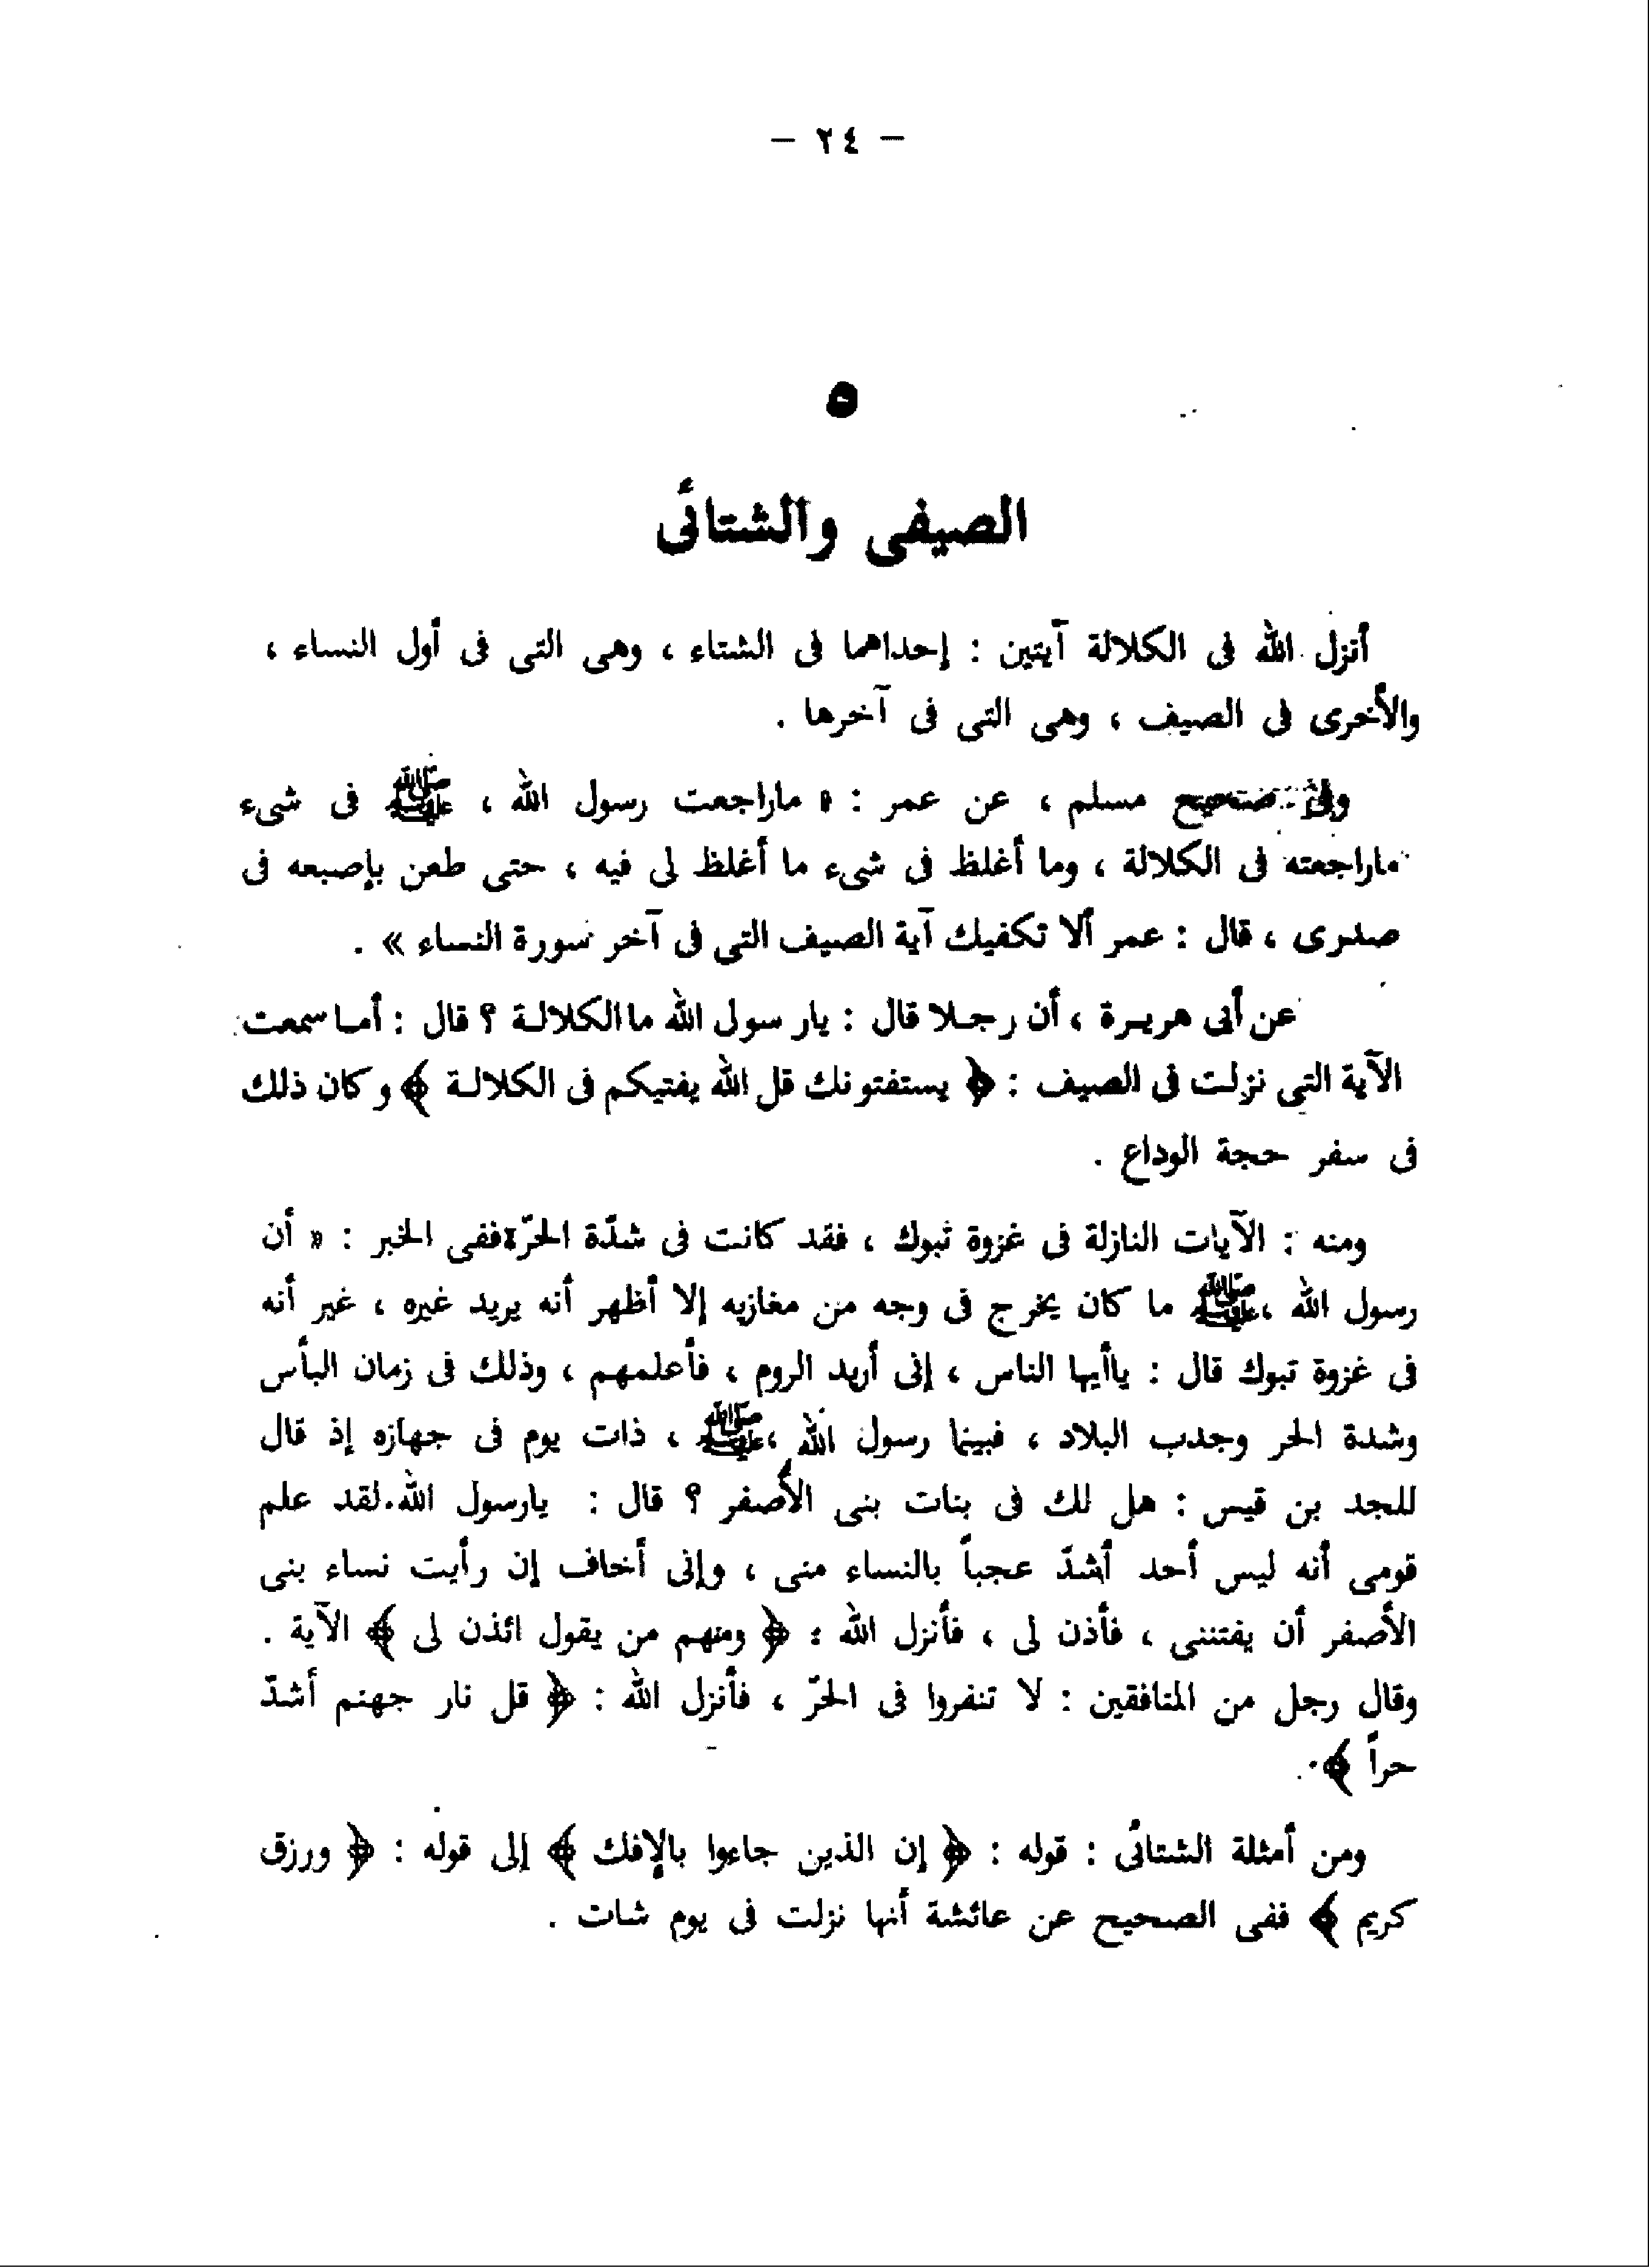 — ٢٤ —
٥
الصيفى والشتائى
أنزل الله فى الكلالة آيتين : إحداهما فى الشتاء ، وهى التى فى أول النساء ،
والأخرى فى الصيف ، وهى التى فى آخرها .
وفى صحيح مسلم ، عن عمر : « ماراجعت رسول الله ، ﷺ فى شىء
ماراجعته فى الكلالة ، وما أغلظ فى شىء ما أغلظ لى فيه ، حتى طعن بإصبعه فى
صدرى ، قال : عمر ألا تكفيك آية الصيف التى فى آخر سورة النساء » .
عن أبى هريرة ، أن رجلا قال : يارسول الله ما الكلالة ؟ قال : أما سمعت
الآية التى نزلت فى الصيف : ﴿ يستفتونك قل الله يفتيكم فى الكلالة ﴾ وكان ذلك
فى سفر حجة الوداع .
ومنه : الآيات النازلة فى غزوة تبوك ، فقد كانت فى شدّة الحرّ ؛ ففى الخبر : « أن
رسول الله ، ﷺ ما كان يخرج فى وجه من مغازيه إلا أظهر أنه يريد غيره ، غير أنه
فى غزوة تبوك قال : ياأيها الناس ، إنى أريد الروم ، فأعلمهم ، وذلك فى زمان البأس
وشدة الحر وجدب البلاد ، فبينما رسول الله ، ﷺ ، ذات يوم فى جهازه إذ قال
للجد بن قيس : هل لك فى بنات بنى الأصفر ؟ قال : يارسول الله . لقد علم
قومى أنه ليس أحد أشدّ عجباً بالنساء منى ، وإنى أخاف إن رأيت نساء بنى
الأصفر أن يفتننى ، فأذن لى ، فأنزل الله : ﴿ ومنهم من يقول ائذن لى ﴾ الآية .
وقال رجل من المنافقين : لا تنفروا فى الحرّ ، فأنزل الله : ﴿ قل نار جهنم أشدّ
حراً ﴾ .
ومن أمثلة الشتائى : قوله : ﴿ إن الذين جاءوا بالإفك ﴾ إلى قوله : ﴿ ورزق
كريم ﴾ ففى الصحيح عن عائشة أنها نزلت فى يوم شات .